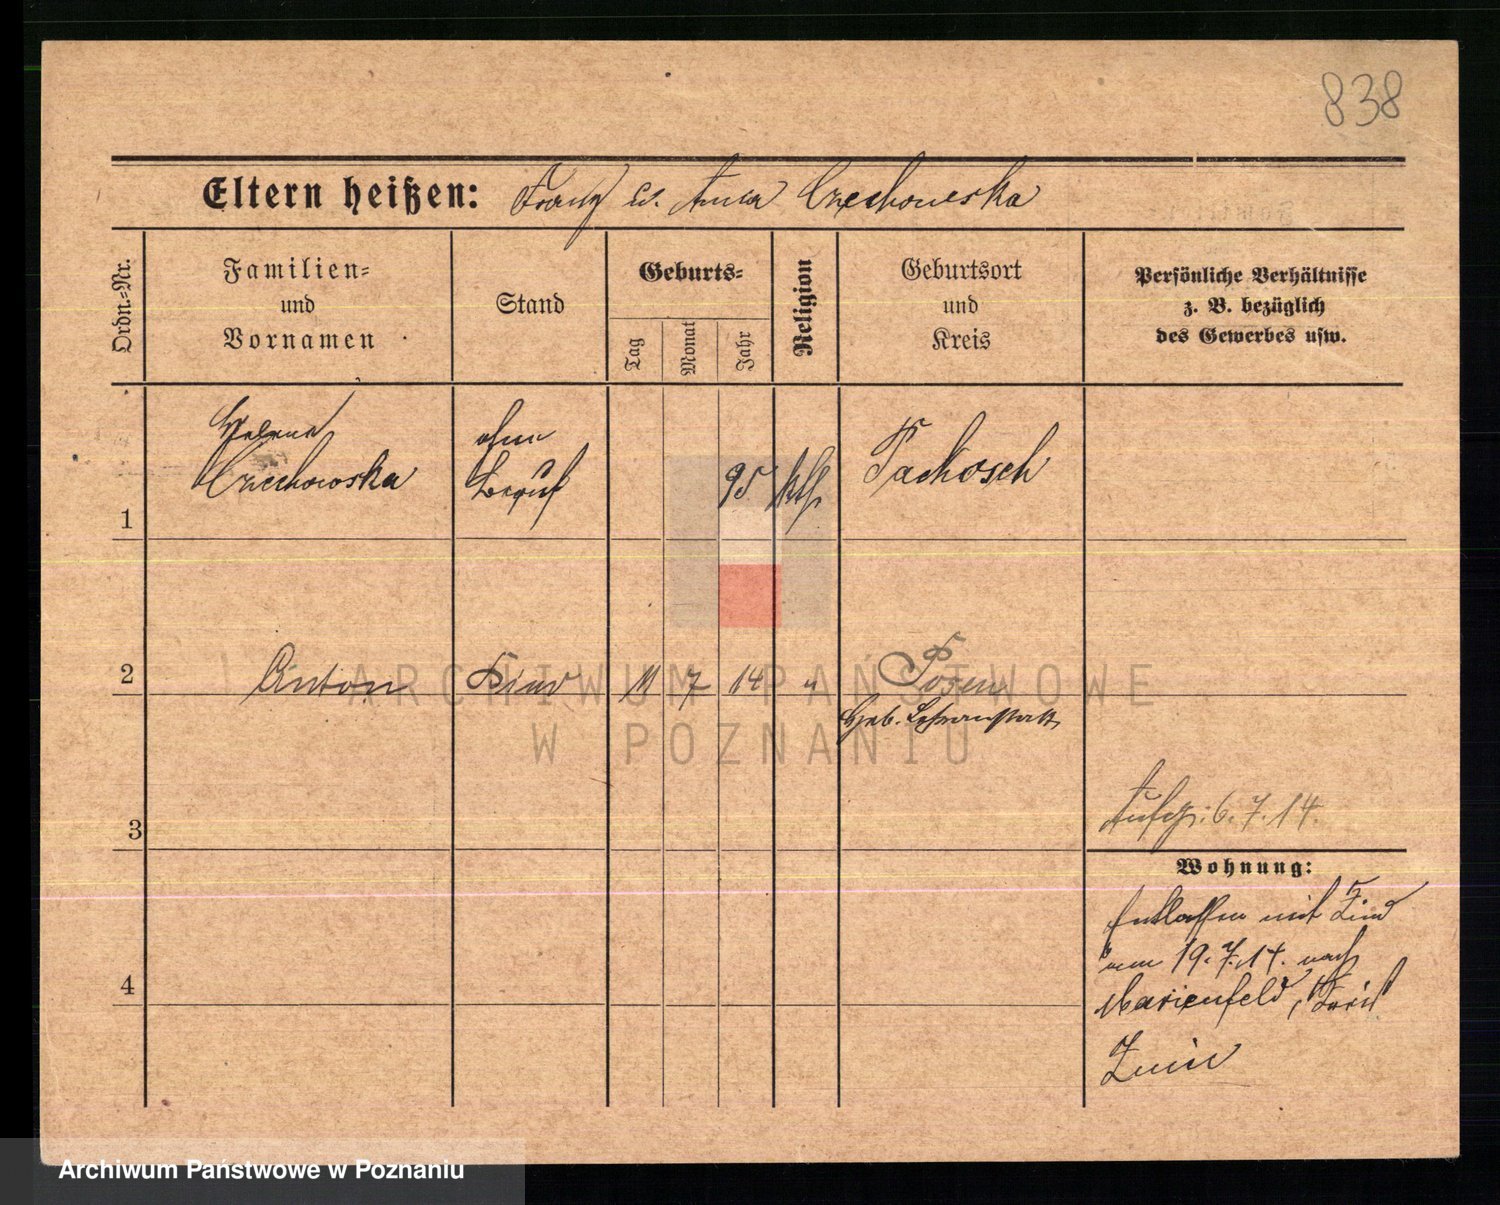 838
Eltern heißen: Franz u. Anna Czechowska
Ordn.-Nr.
Familien-
und
Vornamen
Stand
Geburts-
Tag
Monat
Jahr
Religion
Geburtsort
und
Kreis
Persönliche Verhältnisse
z. B. bezüglich
des Gewerbes usw.
1
Helene
Czechowska
ohne
Beruf
95
kth
Pachosch
2
Anton
Kind
11
7
14
"
Posen
Heb. Lehranstalt
3
Aufg: 6.7.14.
Wohnung:
Entlassen mit Kind
am 19.7.14. nach
Marienfeld, Kreis
Znin
4
ARCHIWUM PAŃSTWOWE
W POZNANIU
Archiwum Państwowe w Poznaniu